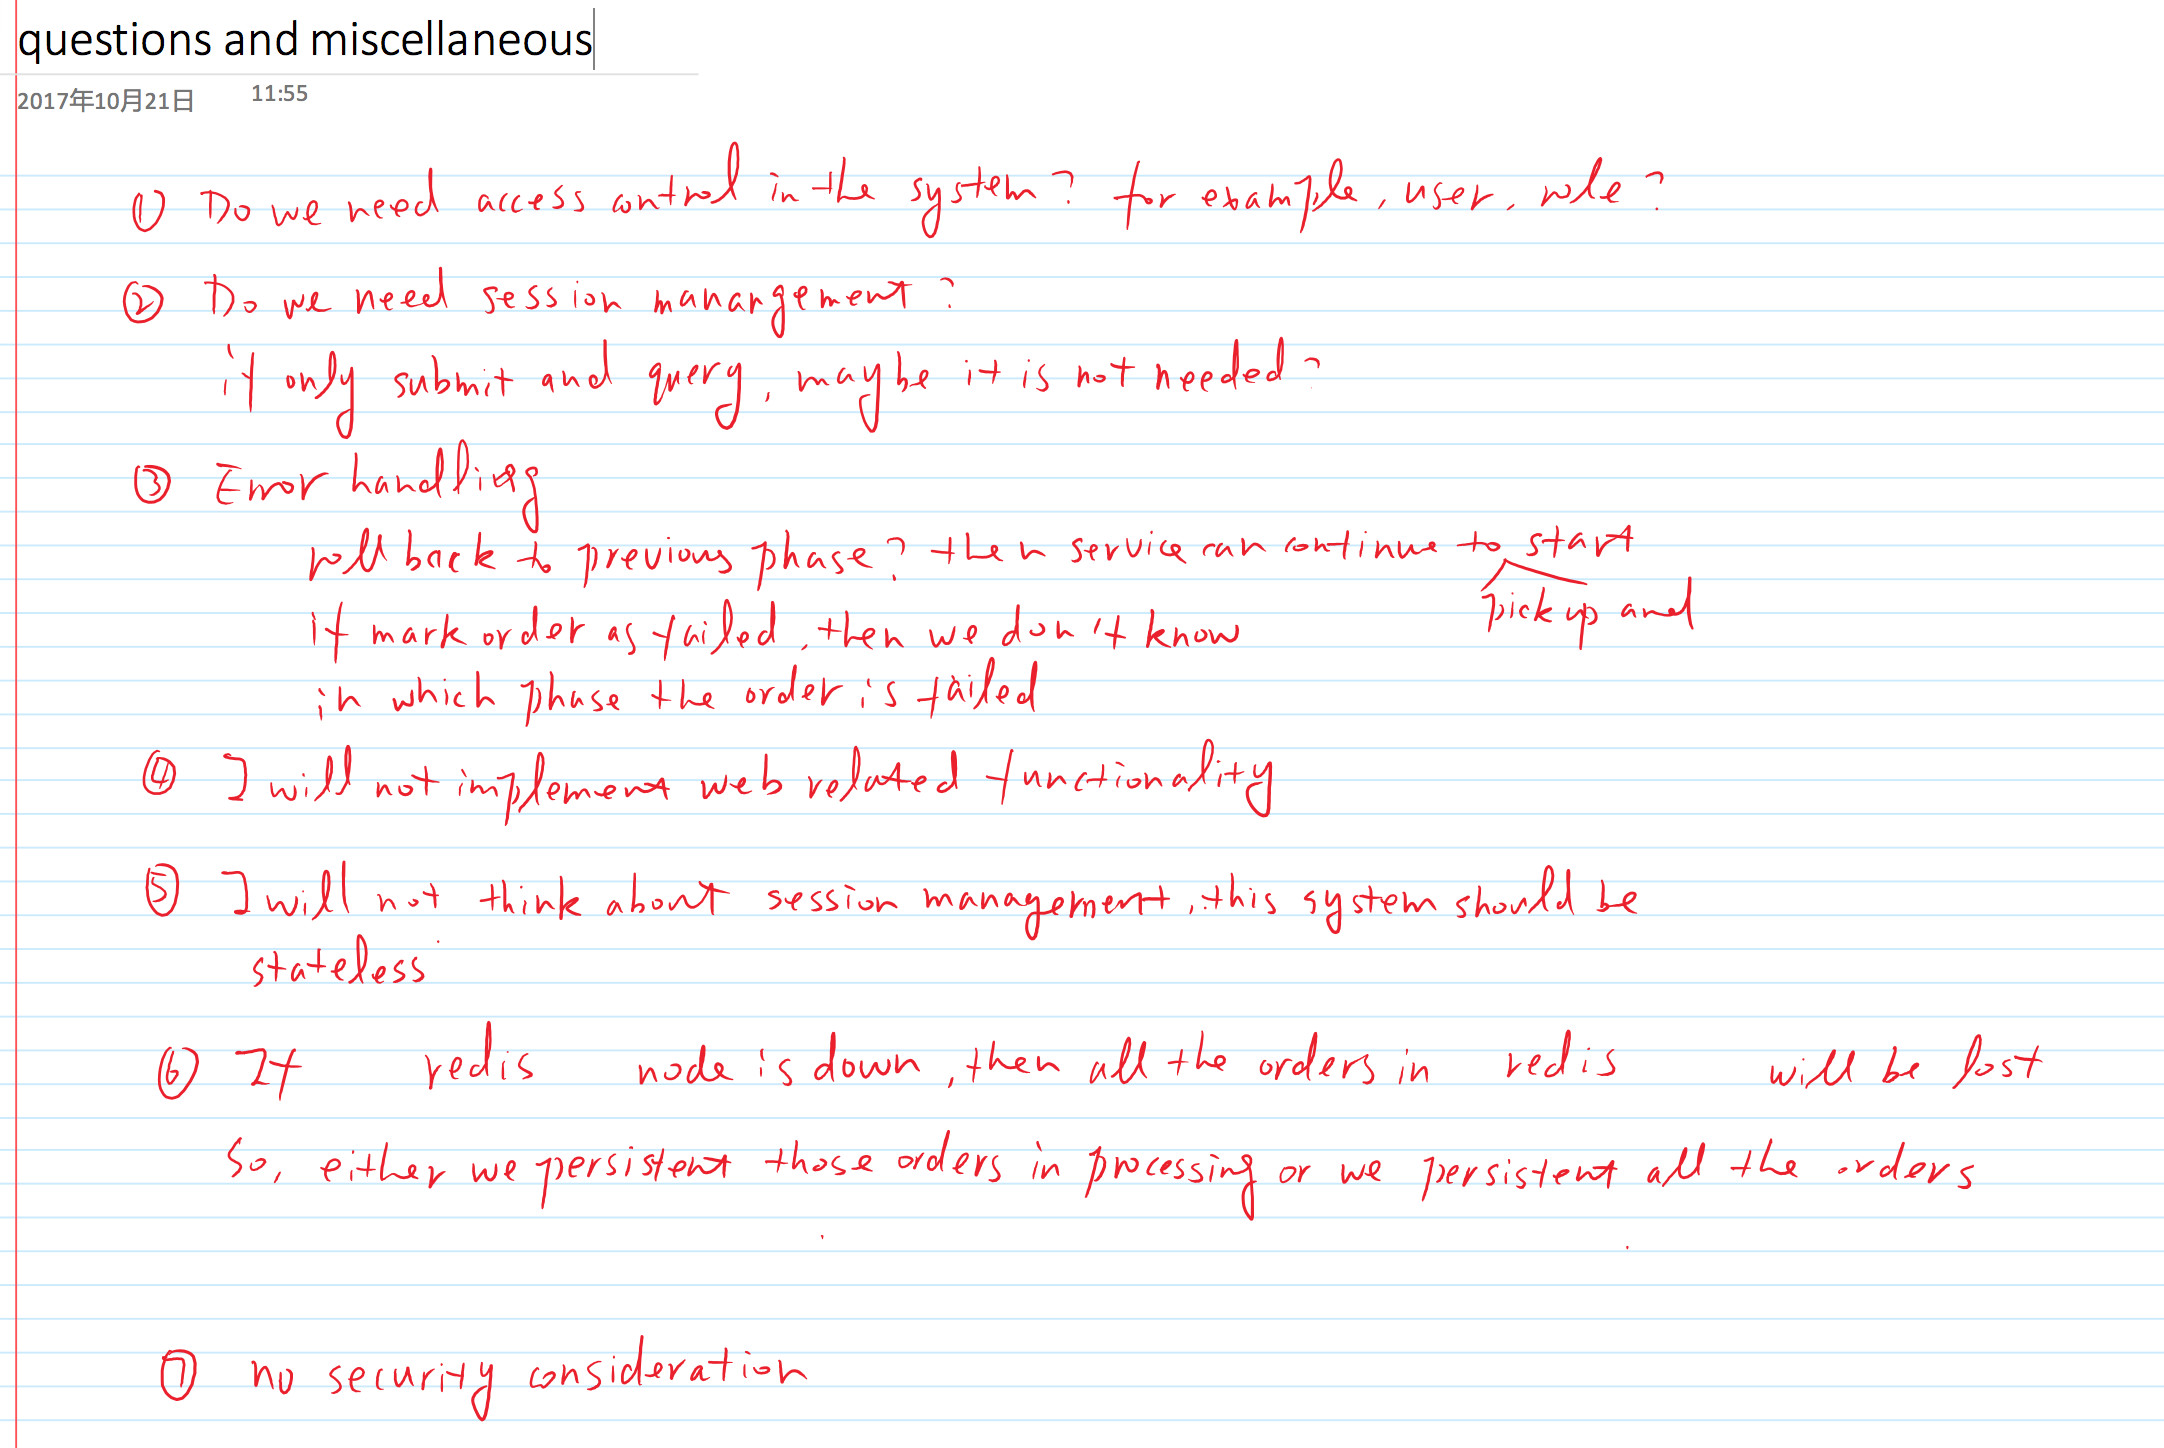 questions and miscellaneous
2017年10月21日 11:55
① Do we need access control in the system? for example, user, role?
② Do we need session manangement?
if only submit and query, maybe it is not needed?
③ Error handling
roll back to previous phase? then service can continue to start
pick up and
if mark order as failed, then we don't know
in which phase the order is failed
④ I will not implement web related functionality
⑤ I will not think about session management, this system should be
stateless
⑥ If redis node is down, then all the orders in redis will be lost
So, either we persistent those orders in processing or we persistent all the orders
⑦ no security consideration